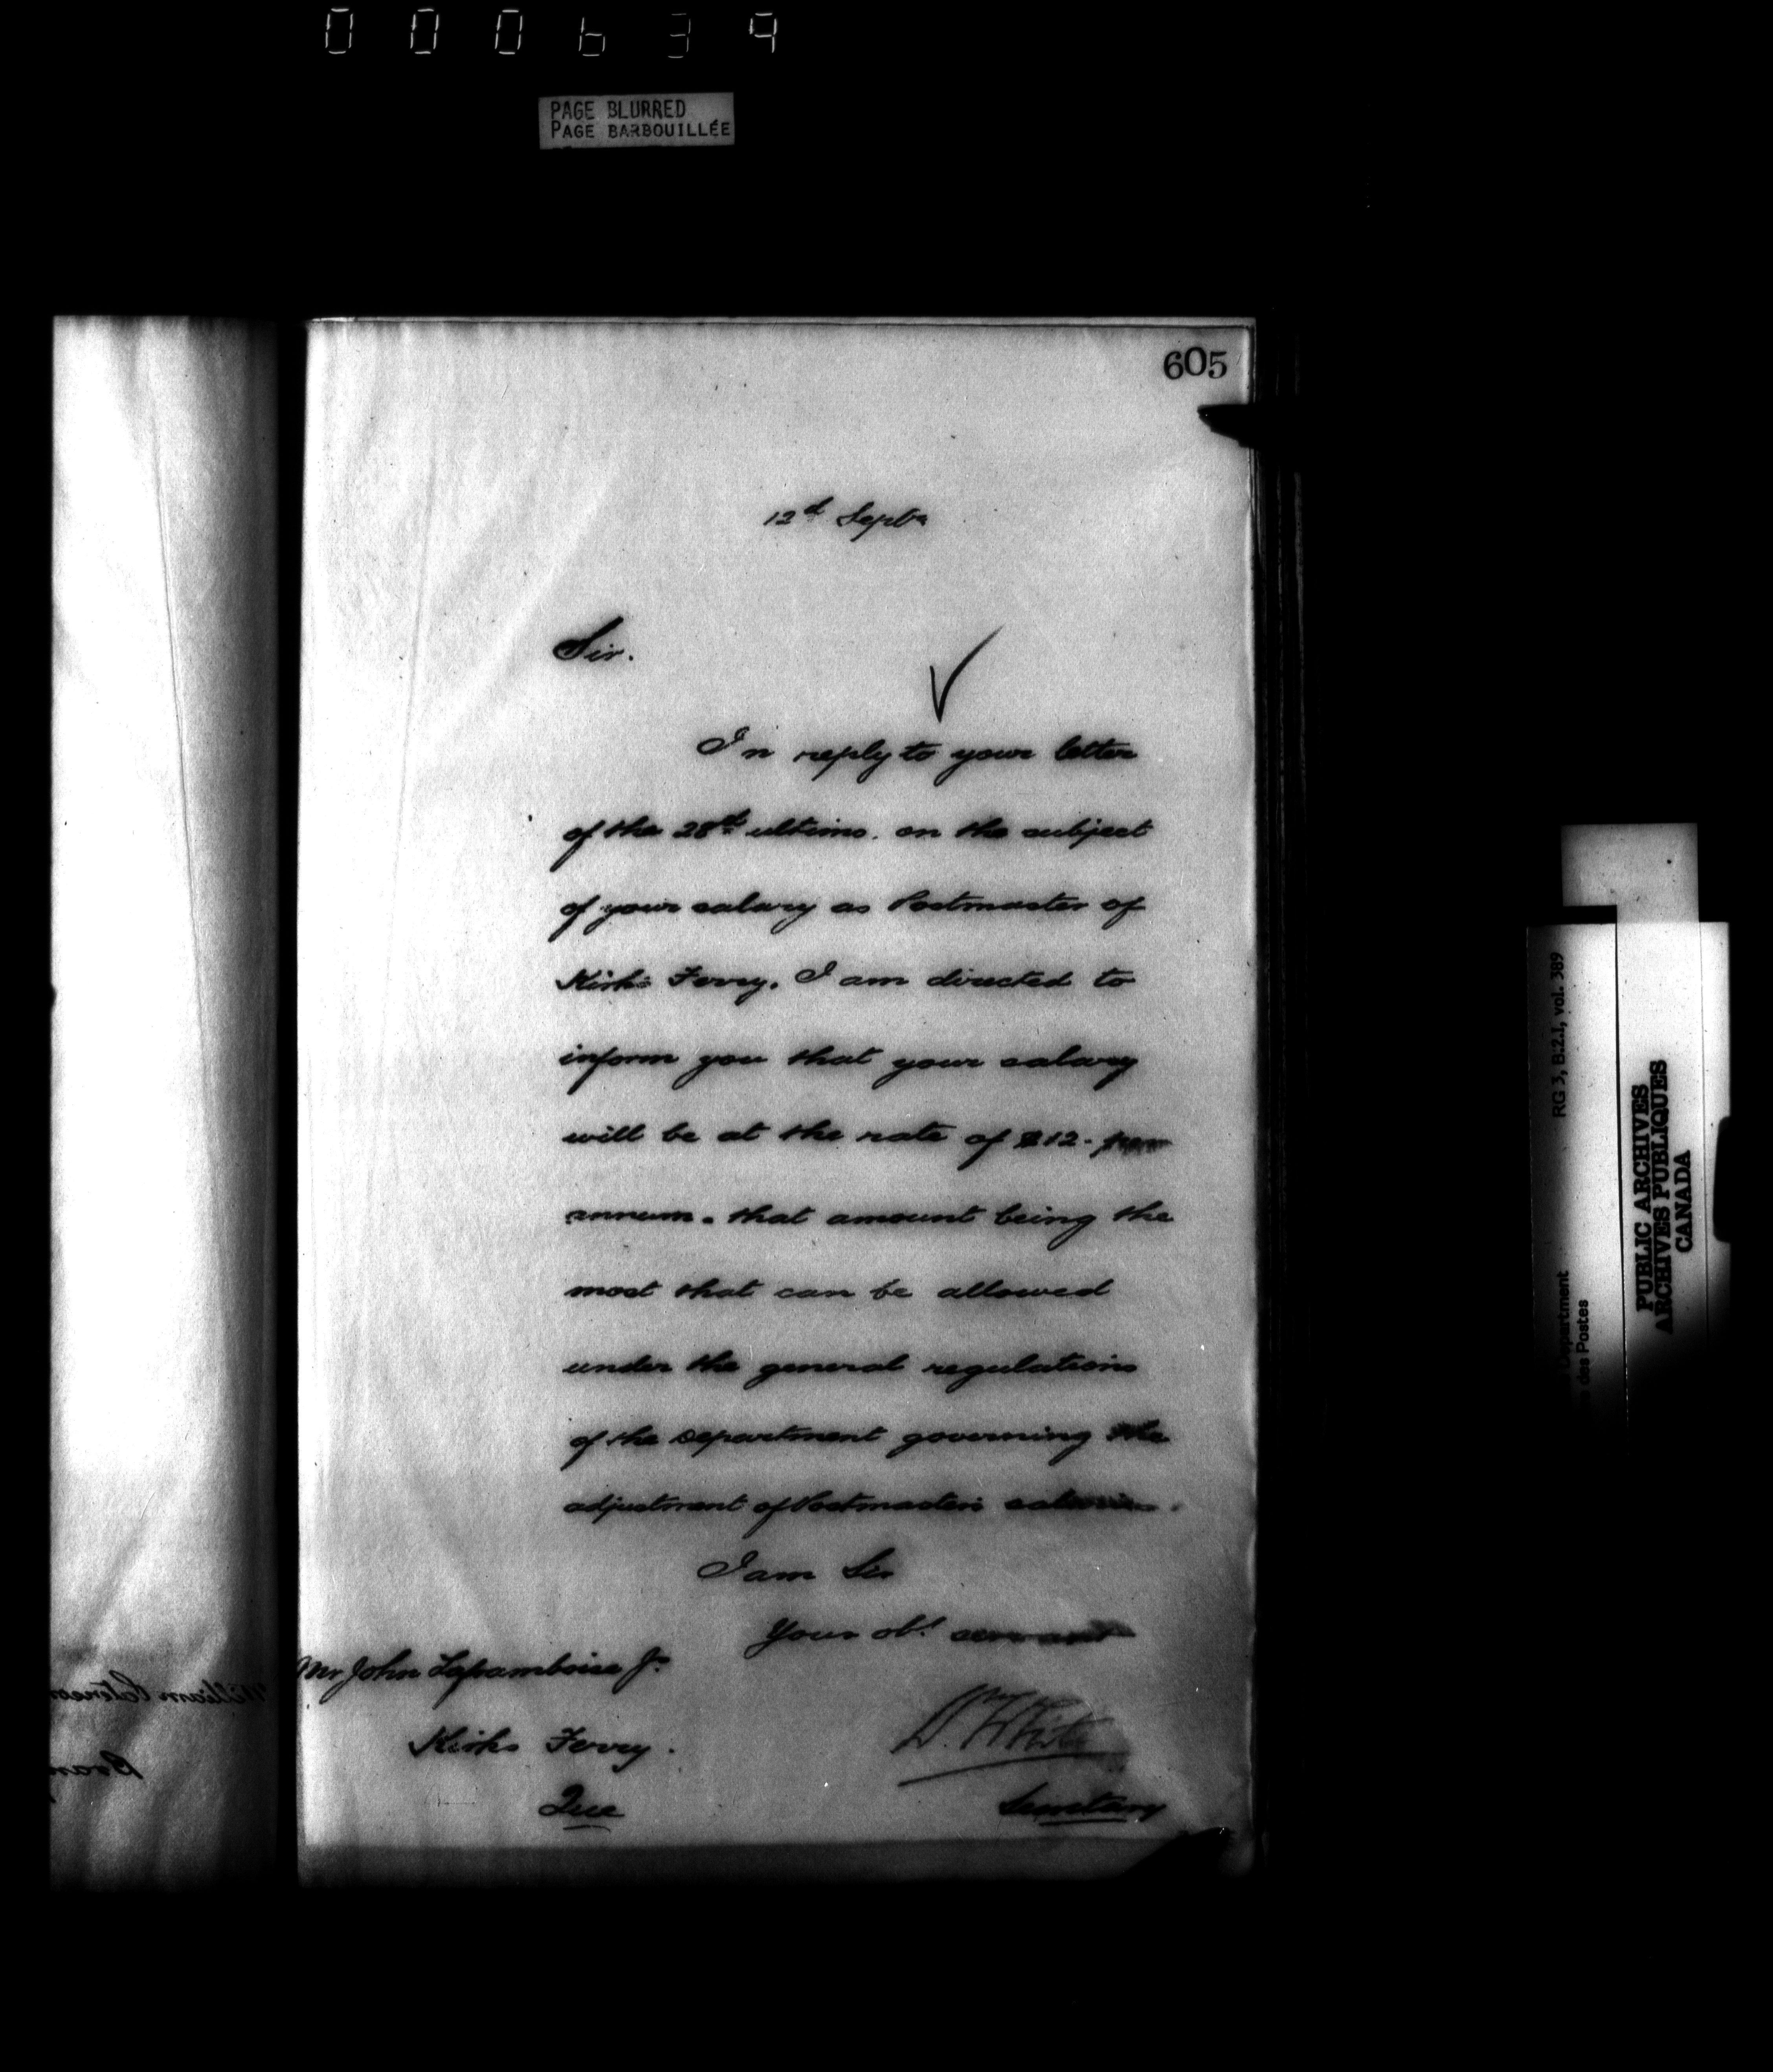 000639
PAGE BLURRED
PAGE BARBOUILLÉE
605
12th Septr
Sir.
In reply to your letter
of the 28th ultimo. on the subject
of your salary as Postmaster of
Kirks Ferry, I am directed to
inform you that your salary
will be at the rate of $12- per
annum. that amount being the
most that can be allowed
under the general regulations
of the Department governing the
adjustment of Postmasters salaries.
I am Sir
Your obt servant
Mr John Laframboise Jr
Kirks Ferry.
Wm White
Que
Secretary
William
RG 3, B.2.1, vol. 389
Department
des Postes
PUBLIC ARCHIVES
ARCHIVES PUBLIQUES
CANADA